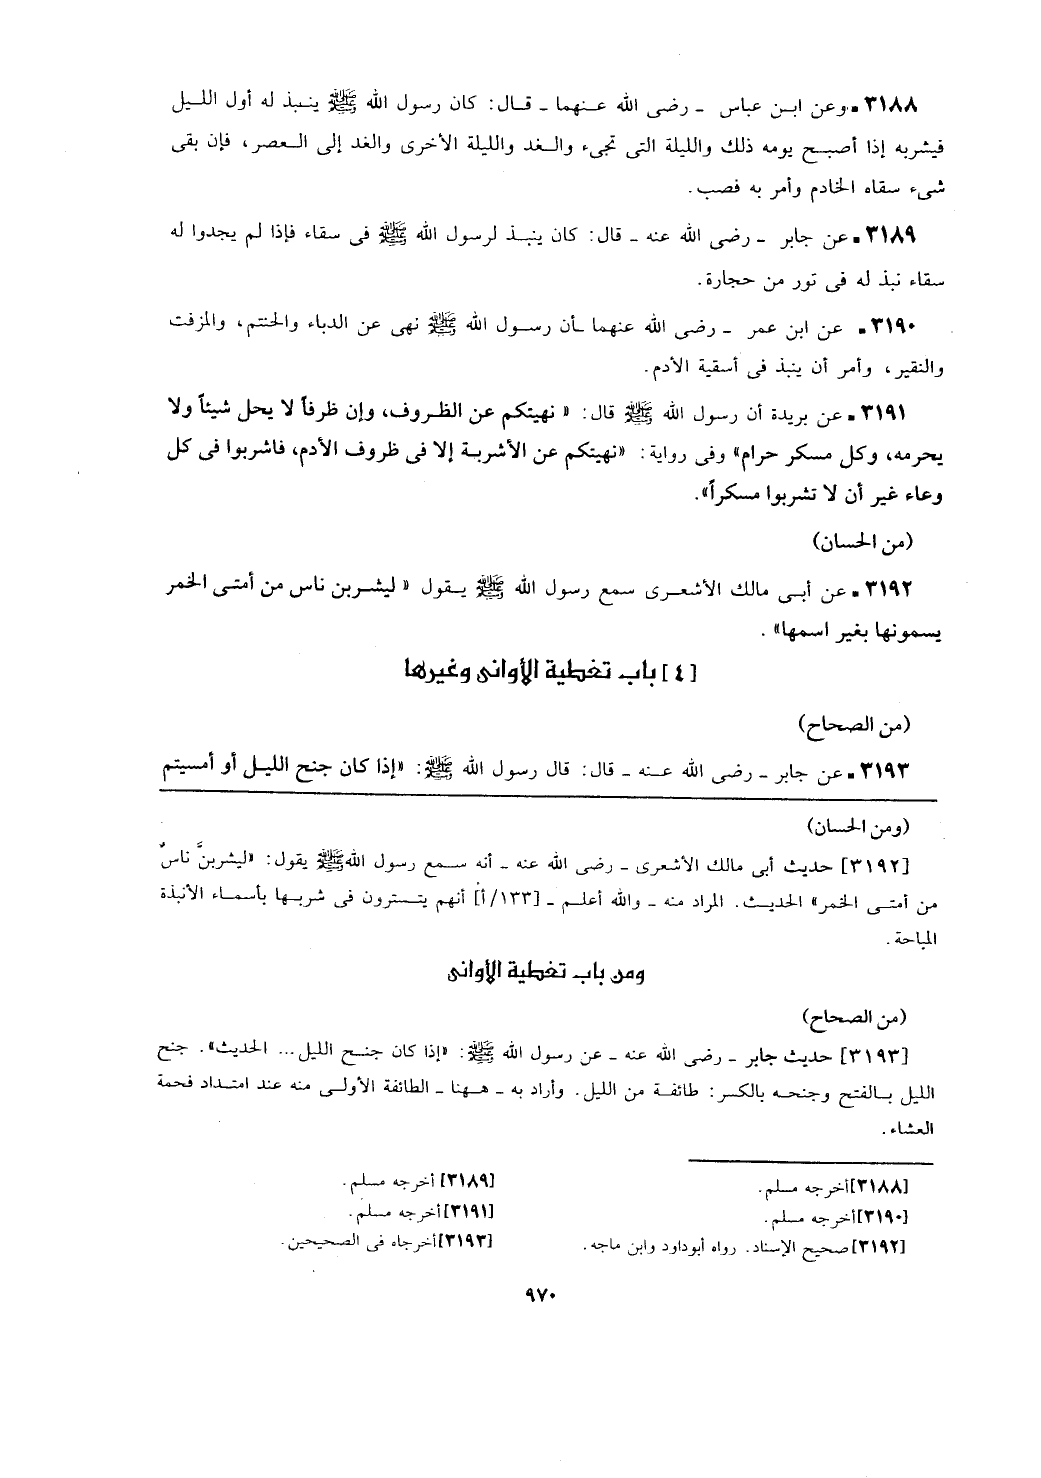 ٣١٨٨ـ وعن ابـن عباس ـ رضى الله عـنهما ـ قـال: كان رسول الله ﷺ ينـبذ له أول اللـيل
فيشربه إذا أصبـح يومه ذلك والليلة التى تجىء والـغد والليلة الأخرى والغد إلى الـعصر، فإن بقى
شىء سقاه الخادم وأمر به فصب.
٣١٨٩ـ عن جابر ـ رضى الله عنه ـ قال: كان ينبـذ لرسول الله ﷺ فى سقاء فإذا لم يجدوا له
سقاء نبذ له فى تور من حجارة.
٣١٩٠ـ عن ابن عمر ـ رضى الله عنهما ـأن رسـول الله ﷺ نهى عن الدباء والحنتم، والمزفت
والنقير، وأمر أن ينبذ فى أسقية الأدم.
٣١٩١ـ عن بريدة أن رسول الله ﷺ قال: « نهيتكم عن الظـروف، وإن ظرفاً لا يحل شيئاً ولا
يحرمه، وكل مسكر حرام» وفى رواية: «نهيتكم عن الأشربـة إلا فى ظروف الأدم، فاشربوا فى كل
وعاء غير أن لا تشربوا مسكراً».
(من الحسان)
٣١٩٢ـ عن أبـى مالك الأشعـرى سمع رسول الله ﷺ يـقول « ليشـربن ناس من أمتـى الخمر
يسمونها بغير اسمها» .
[٤] باب تغطية الأوانى وغيرها
(من الصحاح)
٣١٩٣ـ عن جابر ـ رضى الله عـنه ـ قال: قال رسول الله ﷺ: «إذا كان جنح الليـل أو أمسيتم
(ومن الحسان)
[٣١٩٢] حديث أبى مالك الأشعرى ـ رضى الله عنه ـ أنه سـمع رسول اللهﷺ يقول: «ليشربنَّ ناسٌ
من أمتـى الخمر» الحديـث. المراد منه ـ والله أعلـم ـ [١٣٣/أ] أنهم يتـسترون فى شربـها بأسماء الأنبذة
المباحة.
ومن باب تغطية الأوانى
(من الصحاح)
[٣١٩٣] حديث جابر ـ رضى الله عنه ـ عن رسول الله ﷺ: «إذا كان جنـح الليل... الحديث». جنح
الليل بـالفتح وجنحـه بالكسر: طائفـة من الليل. وأراد به ـ هـهنا ـ الطائفة الأولـى منه عند امتـداد فحمة
العشاء.
[٣١٨٨]أخرجه مسلم.
[٣١٨٩] أخرجه مسلم.
[٣١٩٠]أخرجه مسلم.
[٣١٩١]أخرجه مسلم.
[٣١٩٢]صحيح الإسناد. رواه أبوداود وابن ماجه.
[٣١٩٣]أخرجاه فى الصحيحين.
٩٧٠